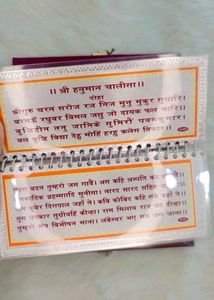 ॥ श्री हनुमान चालीसा ॥
दोहा
श्रीगुरु चरन सरोज रज निज मनु मुकुर सुधारि।
बरनउँ रघुबर बिमल जसु जो दायक फल चारि॥
बुद्धिहीन तनु जानिके सुमिरौं पवनकुमार।
बल बुद्धि विद्या देहु मोहिं हरहु कलेस विकार॥
सहस बदन तुम्हरो जस गावैं। अस कहि श्रीपति कंठ
सनकादिक ब्रह्मादि मुनीसा। नारद सारद सहित
जम कुबेर दिगपाल जहाँ ते। कबि कोबिद कहि सके कहाँ ते॥
तुम उपकार सुग्रीवहिं कीन्हा। राम मिलाय राज पद दीन्हा॥
तुम्हरो मंत्र विभीषन माना। लंकेश्वर भए सब जग जाना॥